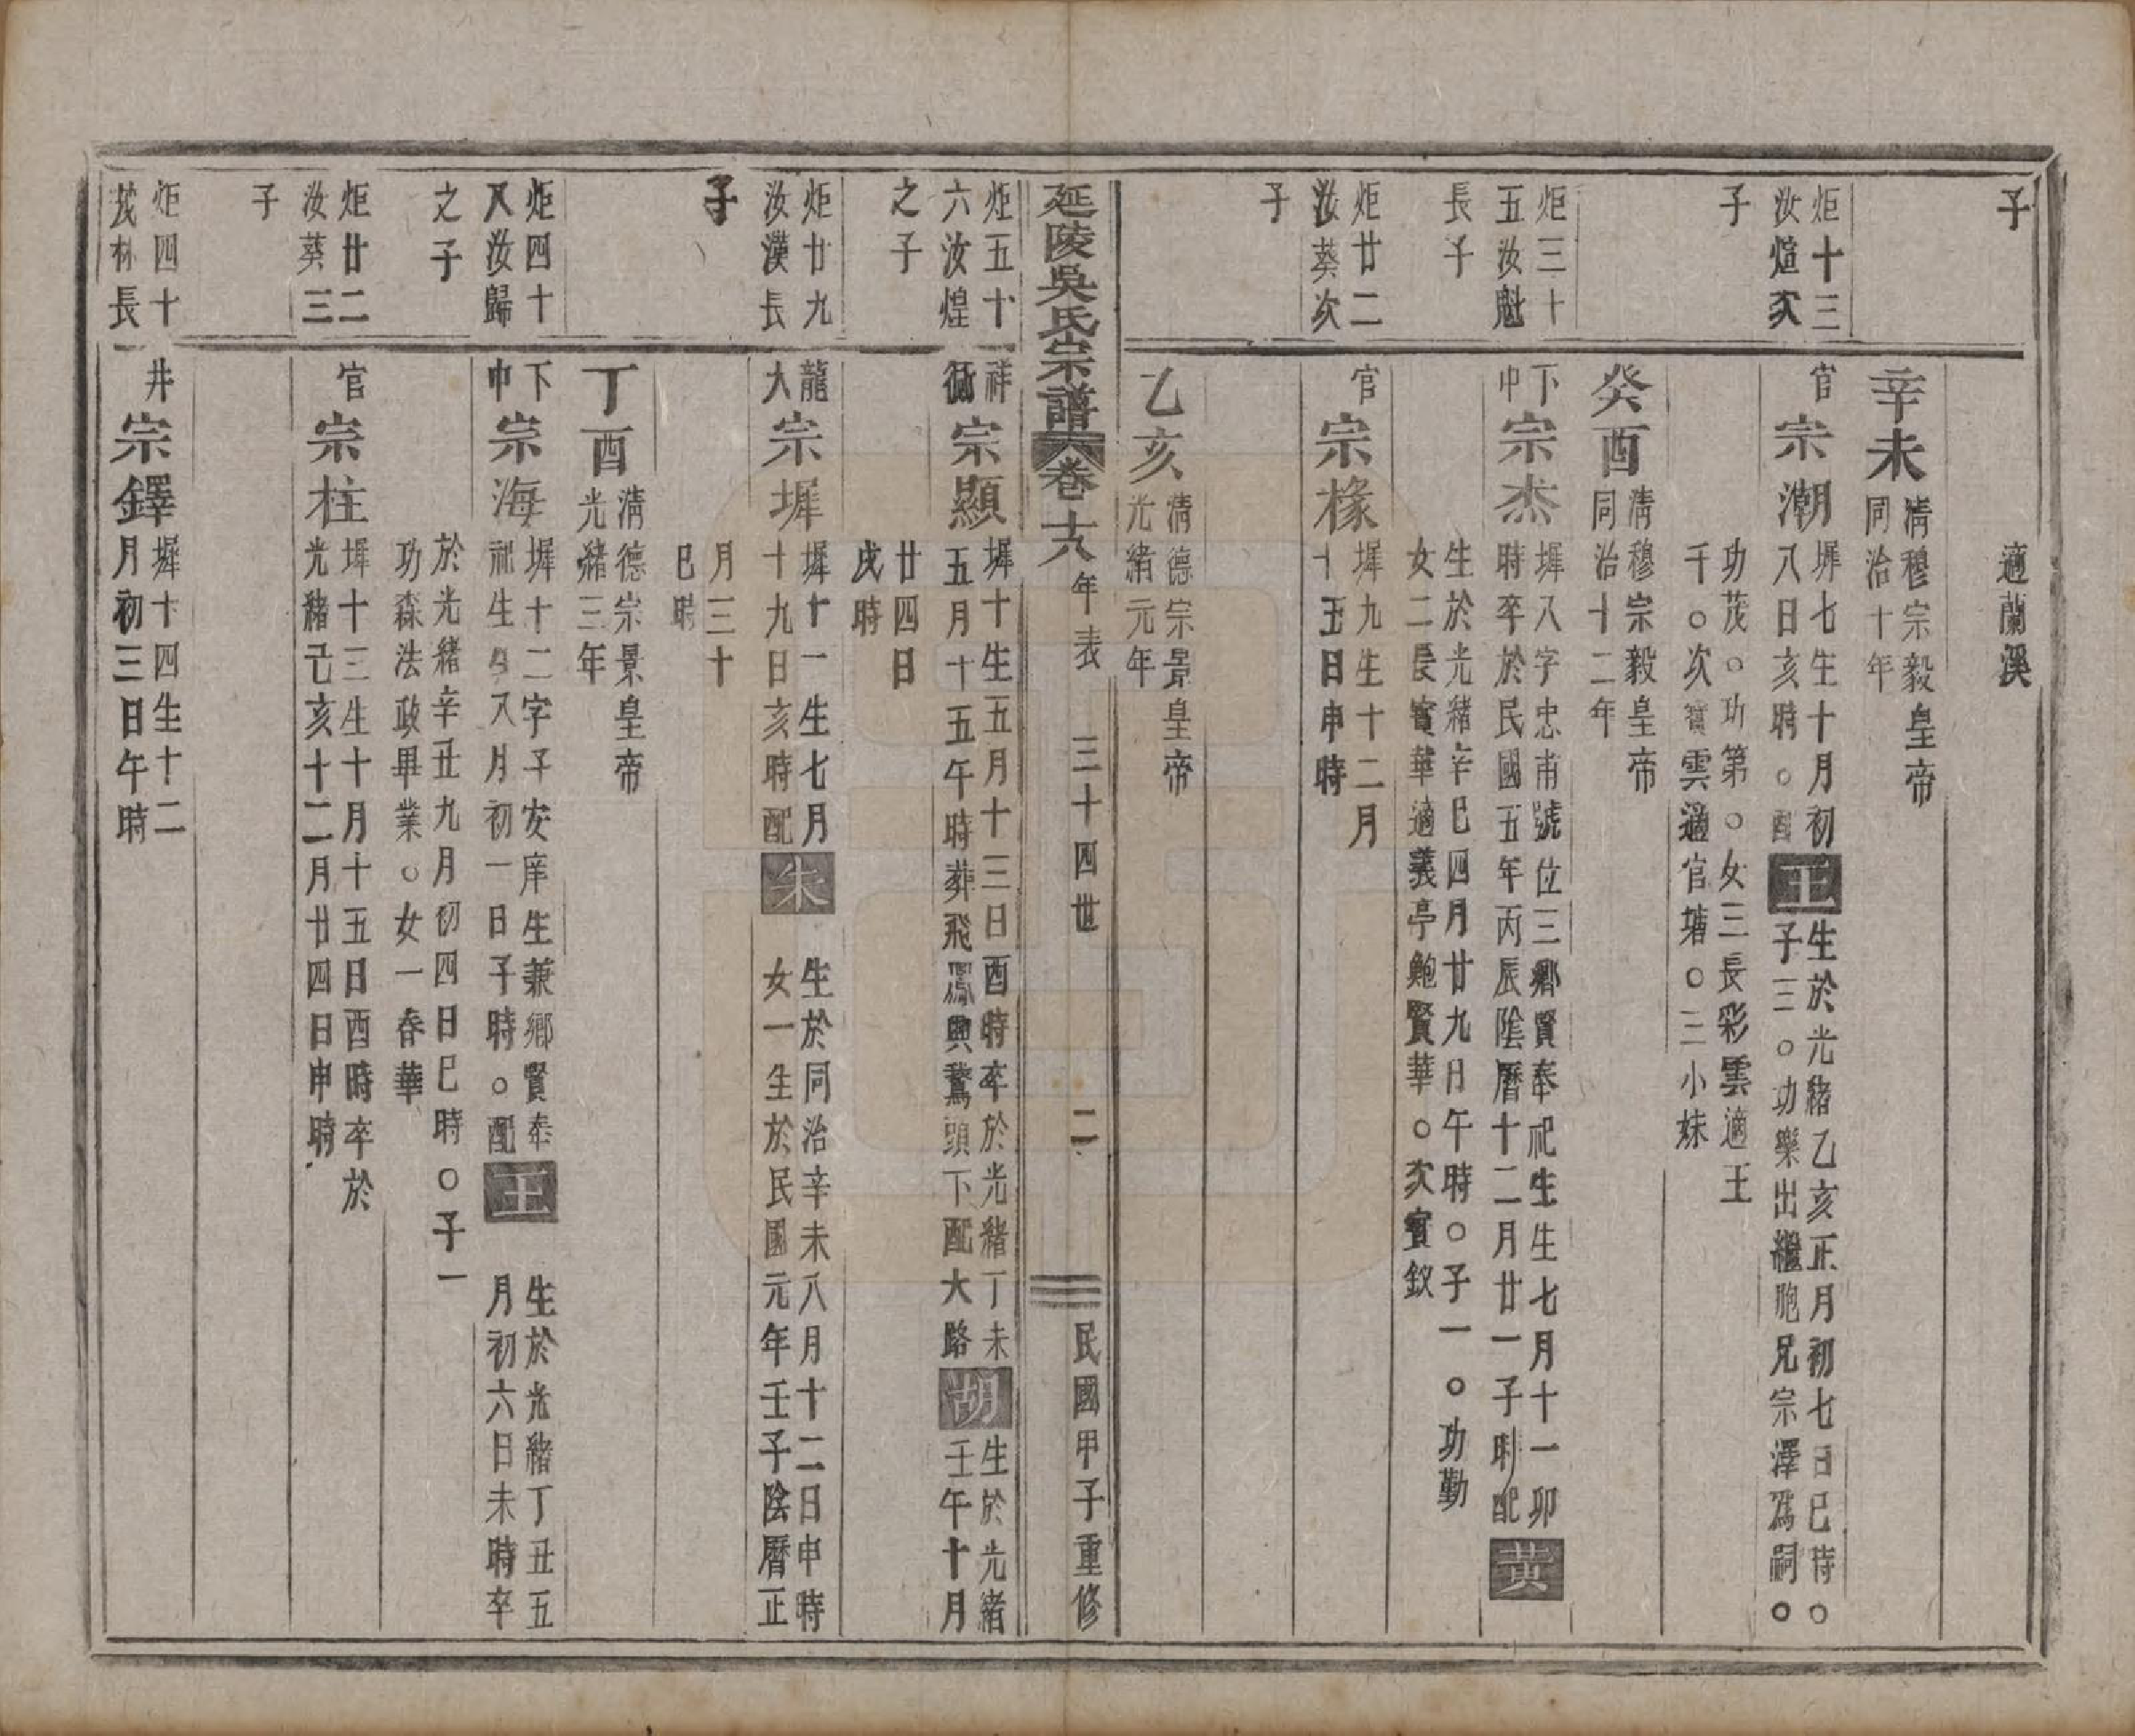 子
適蘭溪
辛未
清穆宗毅皇帝
同治十年
炬十三
汝煊次
官
宗潮
墀七生十月初
八日亥時。配
王
生於光緒乙亥正月初七日巳時。
子三。功樂出繼胞兄宗澤爲嗣。
子
功茂。功第。女三長彩雲適王
千。次寶雲適官塘。三小妹
癸酉
清穆宗毅皇帝
同治十二年
炬三十
五汝魁
下
中
宗杰
墀八字忠甫號位三鄉賢奉祀生生七月十一卯
時卒於民國五年丙辰陰曆十二月廿一子時配
黃
長子
生於光緒辛巳四月廿九日午時。子一。功勤
女二長寶華適義亭鮑賢華。次寶釵
炬廿二
汝葵次
官
宗椽
墀九生十二月
十五日申時
子
乙亥
清德宗景皇帝
光緒元年
延陵吳氏宗譜
卷十六
年表
三十四世
二
民國甲子重修
炬五十
六汝煌
祥
循
宗顯
墀十生五月十三日酉時卒於光緒丁未
五月十五午時葬飛鳳興鵞頭下配大路
胡
生於光緒
壬午十月
之子
廿四日
戌時
炬廿九
汝漢長
龍
大
宗墀
墀十一生七月
十九日亥時配
朱
生於同治辛未八月十二日申時
女一生於民國元年壬子陰曆正
子
月三十
巳時
丁酉
清德宗景皇帝
光緒三年
炬四十
又汝歸
下
中
宗海
墀十二字子安庠生兼鄉賢奉
祀生 又月初一日子時。配
王
生於光緒丁丑五
月初六日未時卒
之子
於光緒辛丑九月初四日巳時。子一
功森法政畢業。女一春華
炬廿二
汝葵三
官
宗柱
墀十三生十月十五日酉時卒於
光緒己亥十二月廿四日申時
子
炬四十
一 林長
井
宗鐸
墀十四生十二
月初三日午時